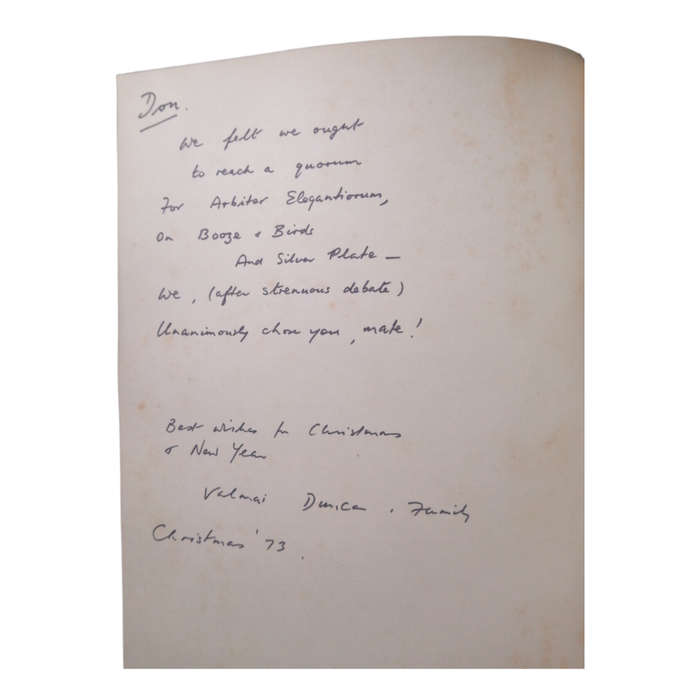 Don.
We felt we ought
to reach a quorum
For Arbiter Elegantiorum,
On Booze & Birds
And Silver Plate —
We, (after strenuous debate)
Unanimously chose you, mate!
Best wishes for Christmas
& New Year
Valmai Duncan & Family
Christmas '73.